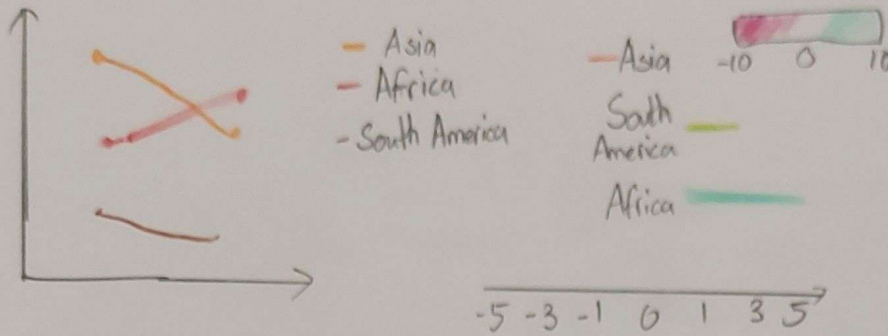 Asia
Africa
South America
Asia
-10 0 10
South
America
Africa
-5 -3 -1 0 1 3 5